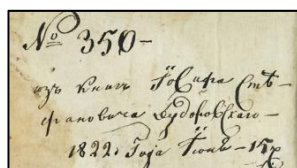 № 350-
изъ книгъ Іосифа Сте-
фановича Будоговскаго
1822 Года Іюня - 15